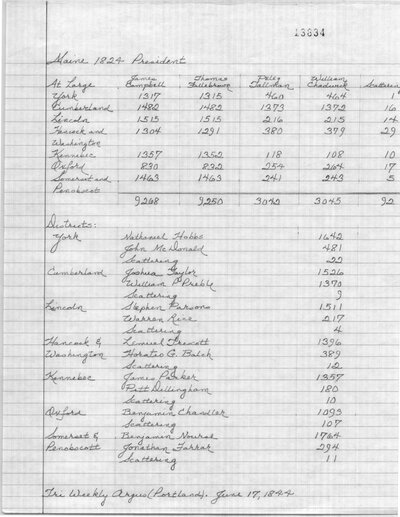 13834
Maine 1824 President
At Large James Campbell Thomas Fillebrown Peleg Tallman William Chadwick Scatterin
York 1317 1315 460 464 1
Cumberland 1482 1482 1373 1372 16
Lincoln 1515 1515 216 215 14
Hancock and 1304 1291 380 379 29
Washington
Kennebec 1357 1352 118 108 10
Oxford 830 832 254 264 17
Somerset and 1463 1463 241 243 5
Penobscot
9268 9250 3042 3045 92
Districts:
York Nathaniel Hobbs 1642
John McDonald 481
Scattering 22
Cumberland Joshua Taylor 1526
William P Preble 1370
Scattering 9
Lincoln Stephen Parsons 1511
Warren Rice 217
Scattering 4
Hancock & Lemuel Trescott 1396
Washington Horatio G. Balch 389
Scattering 12
Kennebec James Parker 1357
Pitt Dillingham 180
Scattering 10
Oxford Benjamin Chandler 1093
Scattering 107
Somerset & Benjamin Nourse 1764
Penobscott Jonathan Farrar 294
Scattering 11
Tri Weekly Argus (Portland). June 17, 1844